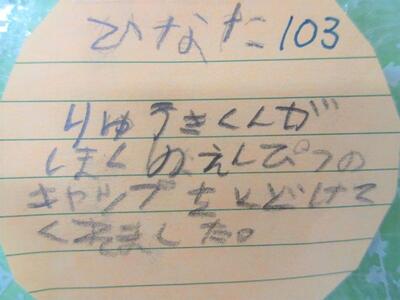 ひなた103
りゅうきくんが
ぼくのえんぴつの
キャップをとどけて
くれました。